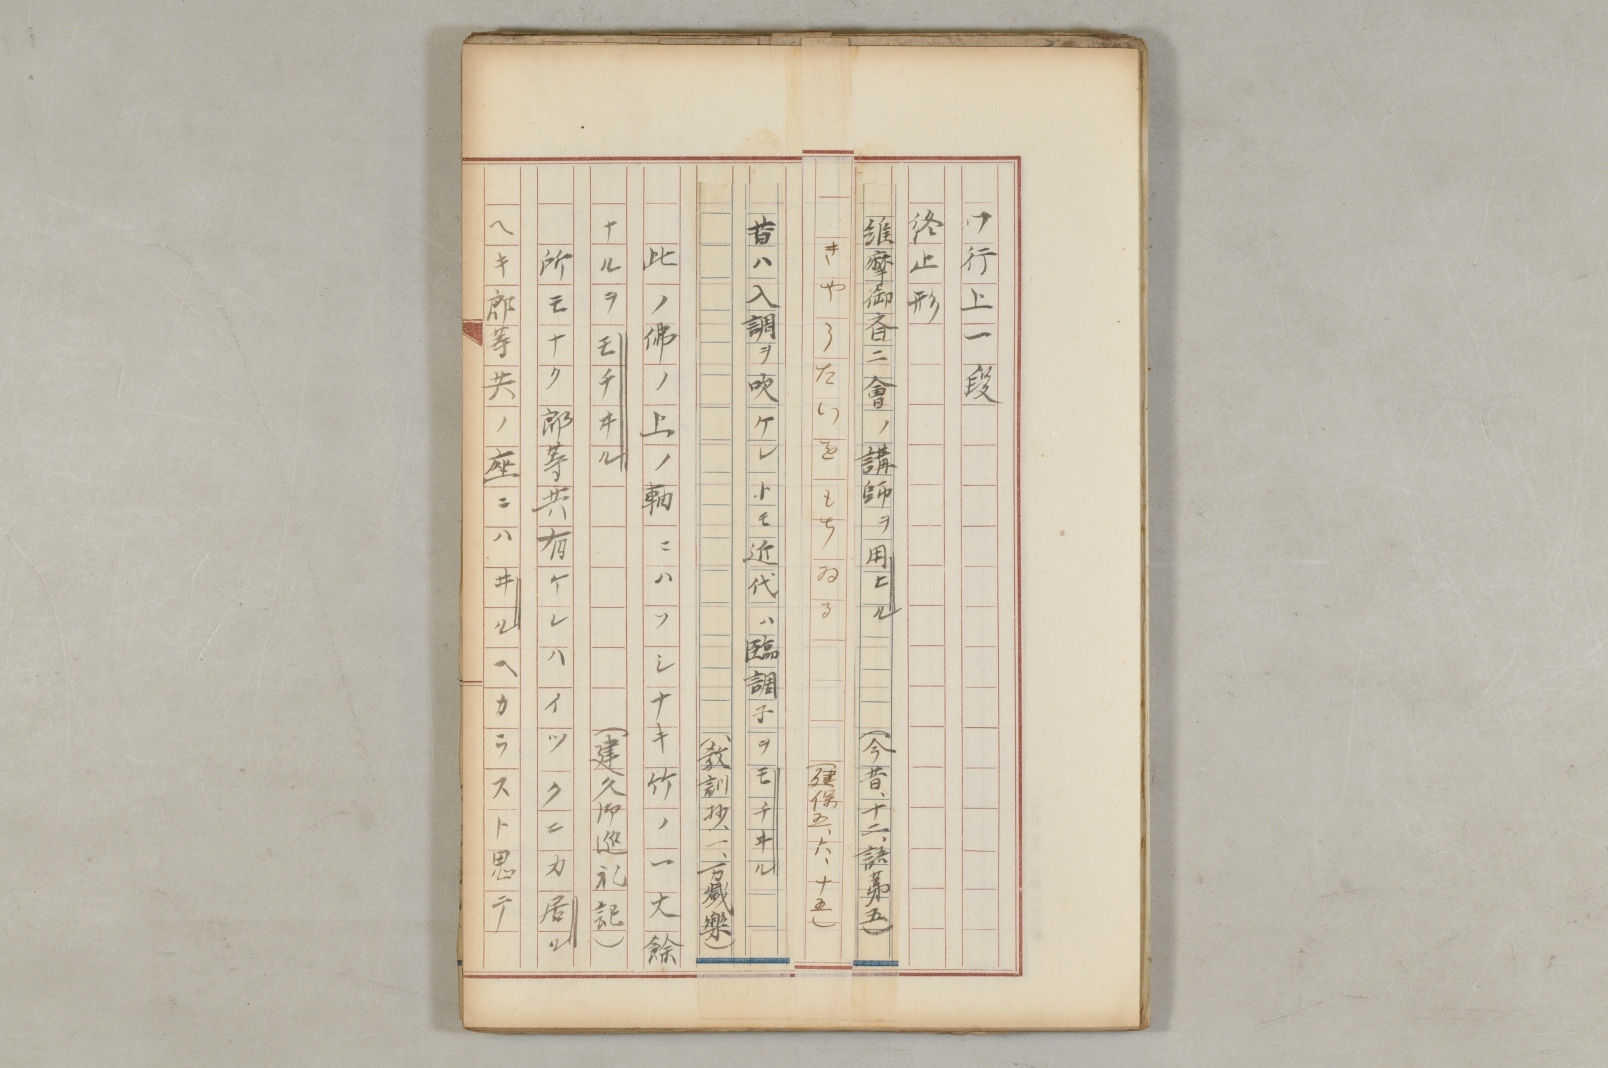 ワ行上一段
終止形
維摩御斉ニ會ノ講師ヲ用ヒル（今昔、十二、語第五）
きやうたいをもちゐる（建保五、六、十五）
昔ハ入調ヲ吹ケレトモ近代ハ臨調子ヲモチヰル
（教訓抄、一、万歳樂）
此ノ佛ノ上ノ軸ニハソシナキ竹ノ一丈餘
ナルヲモチヰル（建久御巡礼記）
所モナク郎等共有ケレハイツクニカ居ル
ヘキ郎等共ノ座ニハヰルヘカラスト思テ